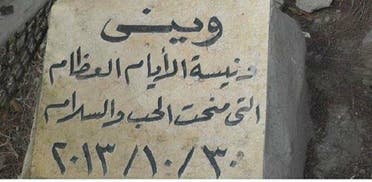 ويني
ونيسة الأيام العظام
التي منحت الحب والسلام
٢٠١٣/١٠/٣٠